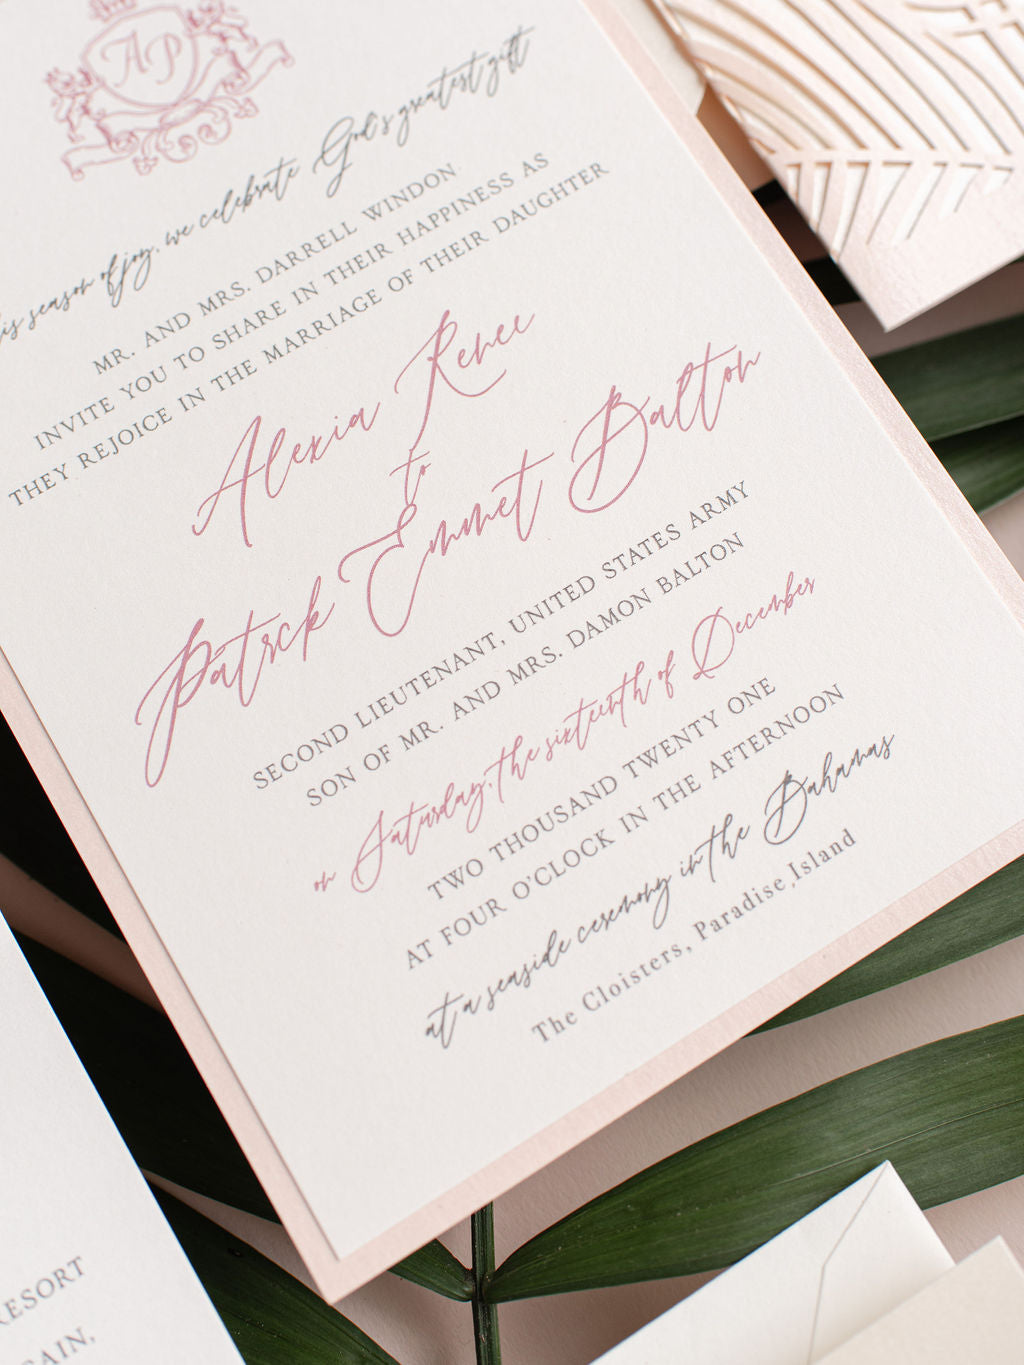 AP
season of joy, we celebrate God's greatest gift
MR. AND MRS. DARRELL WINDON
INVITE YOU TO SHARE IN THEIR HAPPINESS AS
THEY REJOICE IN THE MARRIAGE OF THEIR DAUGHTER
Alexia Renee
to
Patrck Emmet Balton
SECOND LIEUTENANT, UNITED STATES ARMY
SON OF MR. AND MRS. DAMON BALTON
on Saturday, the sixteenth of December
TWO THOUSAND TWENTY ONE
AT FOUR O'CLOCK IN THE AFTERNOON
at a seaside ceremony in the Bahamas
The Cloisters, Paradise Island